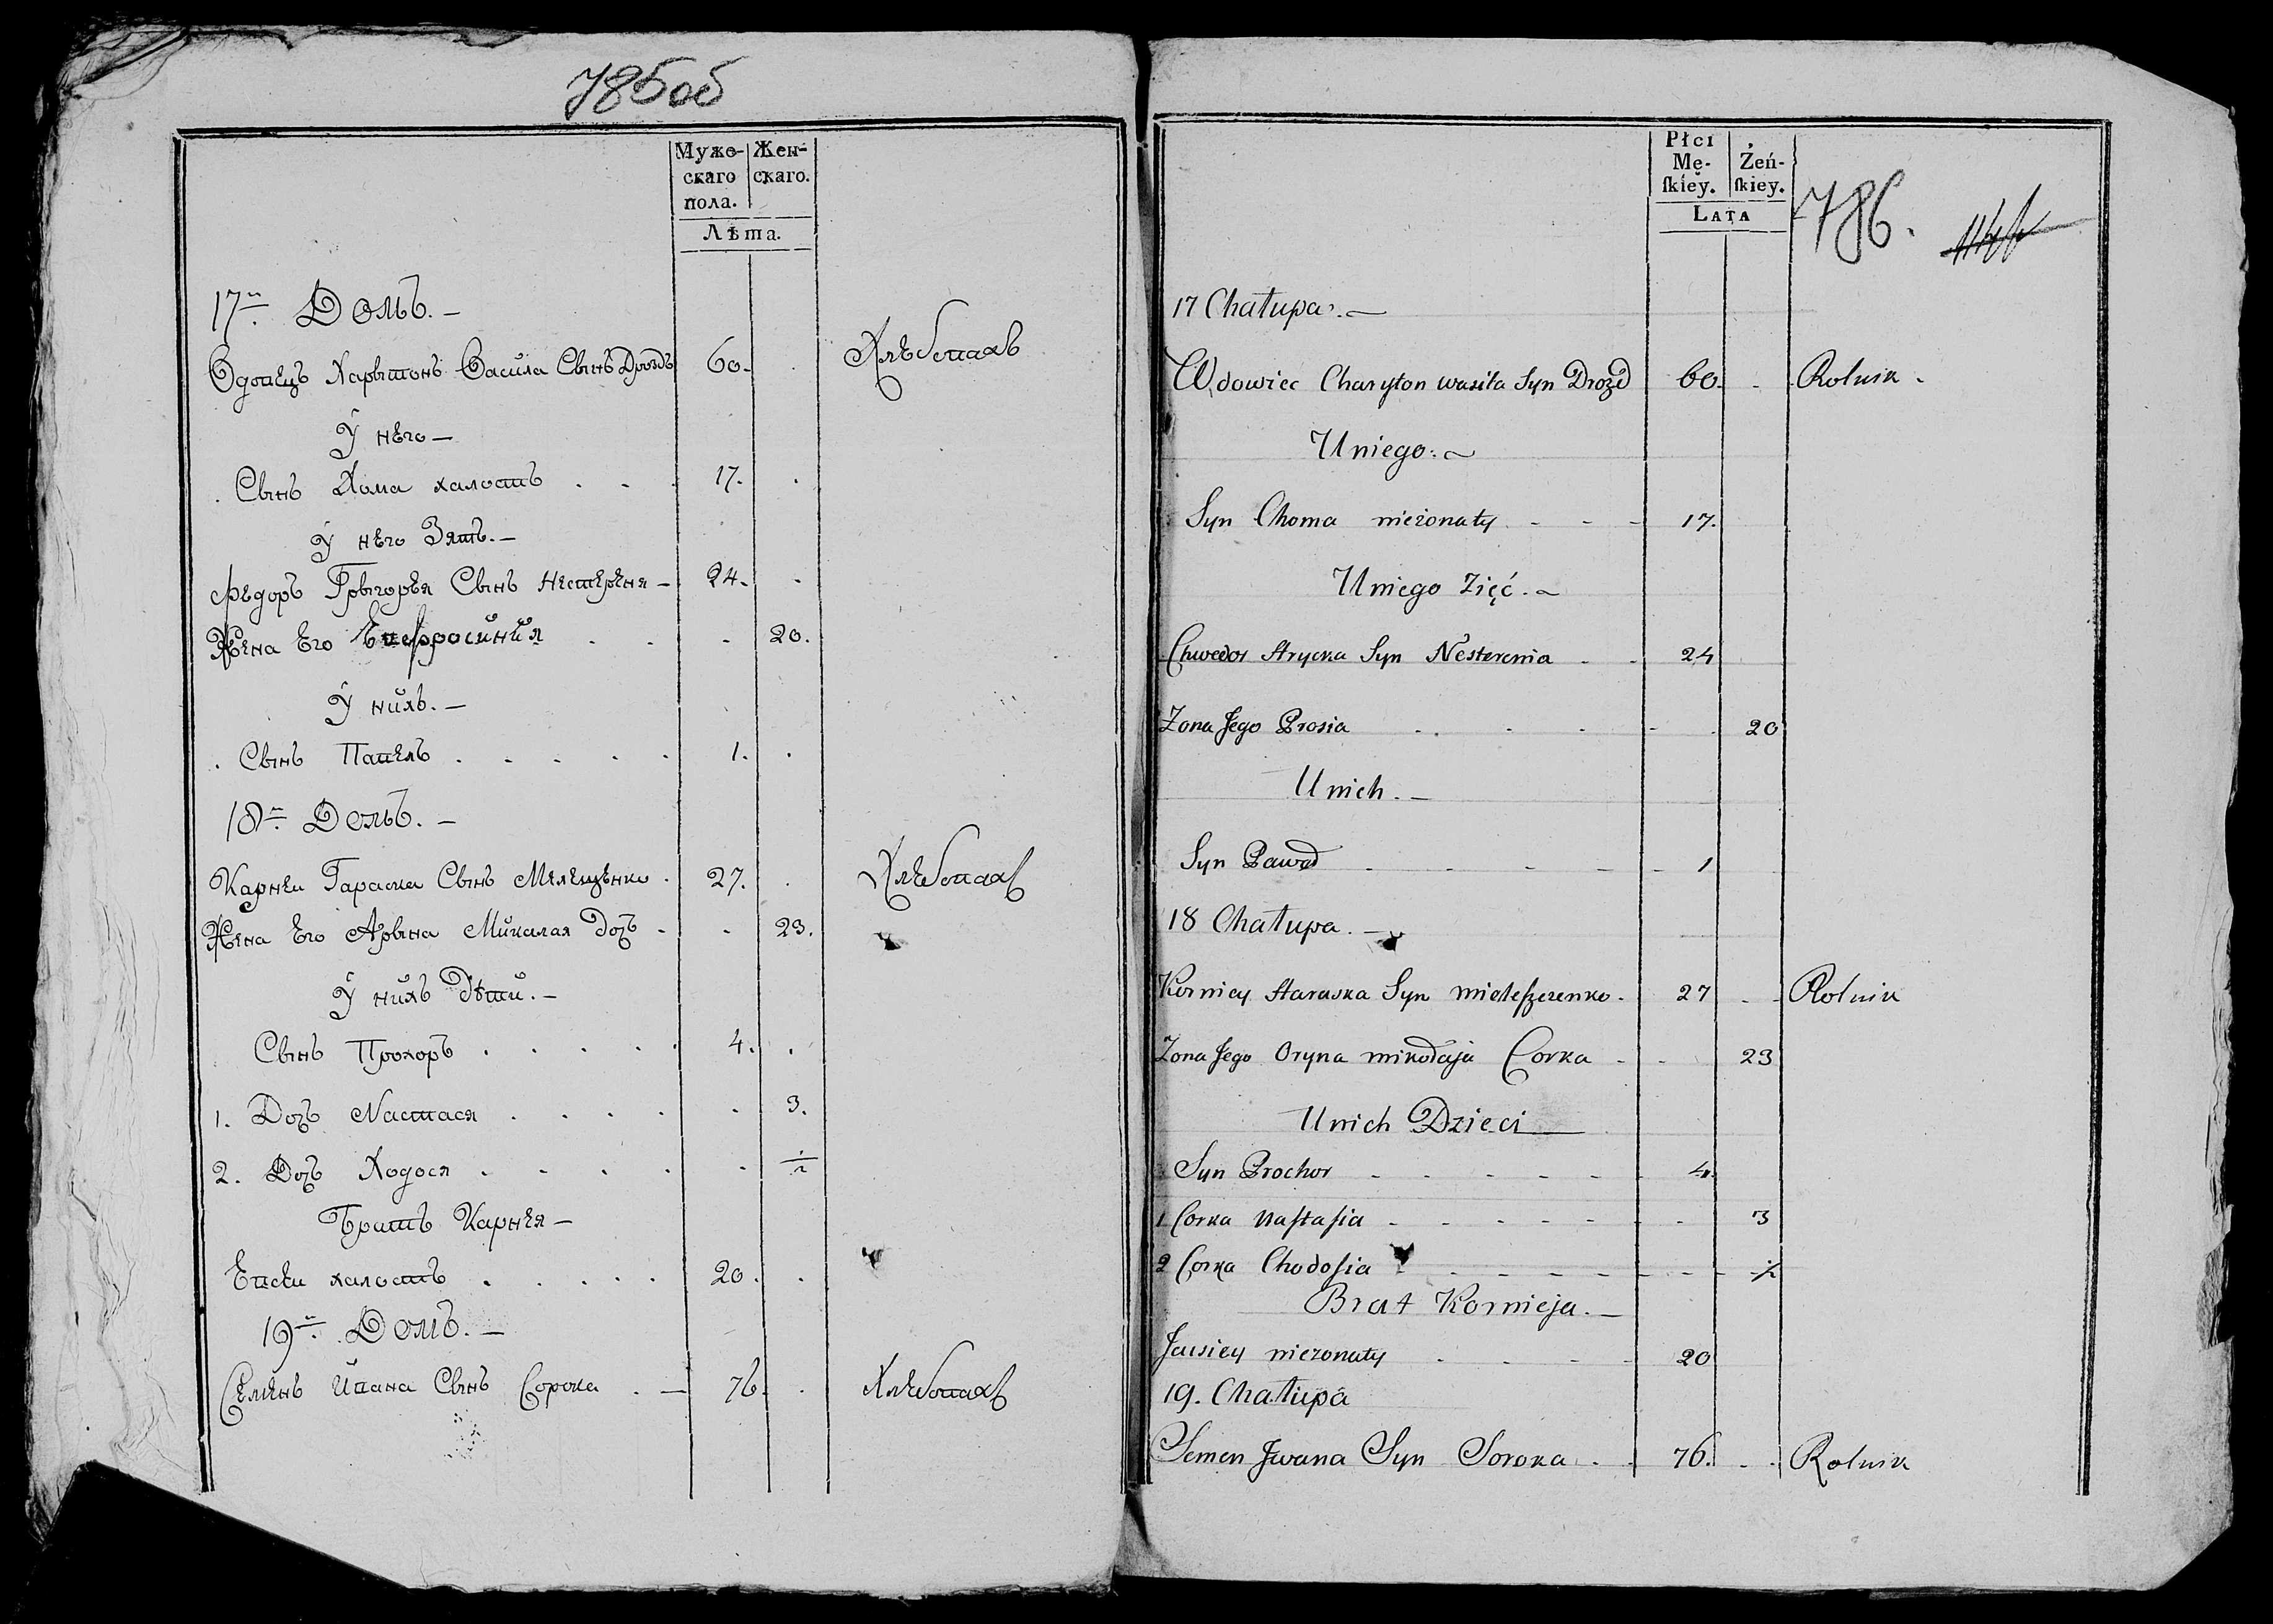 785об
Муже- Жен-
скаго скаго.
пола.
Лѣта.
17й Домъ. –
Вдовецъ Харытонъ Васила Сынъ Дроздъ 60. Хлѣбопахъ
У него –
Сынъ Хома халостъ 17.
У него Зять. –
Федоръ Грыгорѣя Сынъ Нестереня – 24.
Жена Его Евфросинія 20.
У нихъ. –
Сынъ Павелъ 1.
18й Домъ. –
Карней Гараска Сынъ Мелещенко 27. Хлебопахъ
Жена Его Арына Микалая Дочь 23.
У нихъ Дѣти. –
Сынъ Прохоръ 4.
1. Дочь Настася 3.
2. Дочь Ходося ½
Братъ Карнея –
Евсей халостъ 20.
19й Домъ. –
Семенъ Ивана Сынъ Сорока – 76. Хлебопахъ
Płci
Mę- Żeń-
ſkiey. ſkiey.
LATA
786.
17 Chałupa. –
Wdowiec Charyton wasila Syn Drozd 60. Rolnik
U niego. –
Syn Choma nieżonaty 17.
U niego Zięć. –
Chwedor Hrycka Syn Nesterenia 24
Zona Jego Prosia 20
U nich. –
Syn Paweł 1
18 Chałupa. –
Korniey Haraska Syn mieleſzczenko 27 Rolnik
Zona Jego Oryna mikołaja Corka 23
U nich Dzieci
Syn Prochor 4.
1 Corka Naſtaſia 3
2 Corka Chodoſia ½
Brat Kornieja. –
Jausiey niezonaty 20
19. Chałupa
Semen Jwana Syn Soroka 76. Rolnik